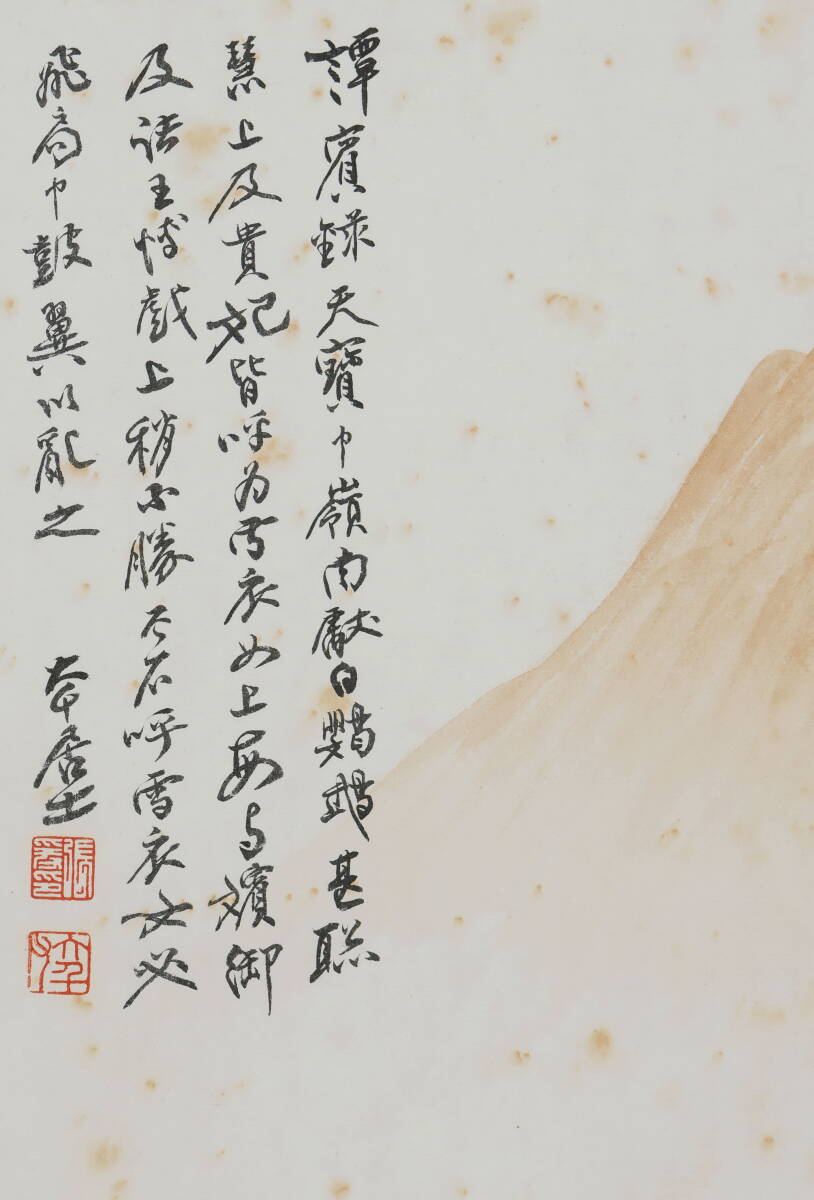 譚賓錄天寶中嶺南獻白鸚鵡甚聰
慧上及貴妃皆呼為雪衣女上每與嬪御
及諸王博戲上稍不勝左右呼雪衣女必
飛局中鼓翼以亂之
大千居士
張爰印
大千